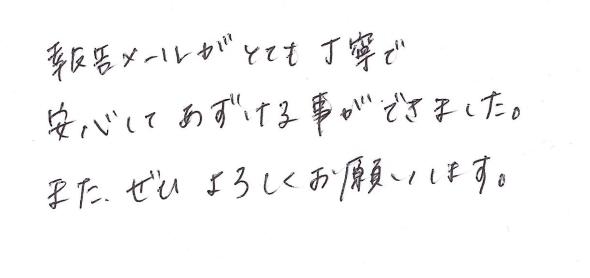 報告メールがとても丁寧で
安心してあずける事ができました。
また、ぜひよろしくお願いします。